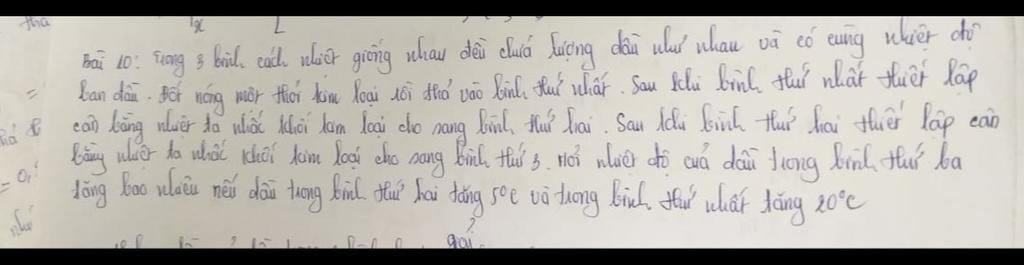 tha x 2
Bài 10: Trong 3 bình cách nhiệt giống nhau đều chứa lượng dầu như nhau và có cùng nhiệt độ
ban đầu. Đốt nóng một thỏi kim loại rồi thả vào bình thứ nhất. Sau khi bình thứ nhất thiết lập
cân bằng nhiệt ta nhấc khỏi kim loại cho sang bình thứ hai. Sau khi bình thứ hai thiết lập cân
bằng nhiệt ta nhấc khối kim loại cho sang bình thứ 3. Hỏi nhiệt độ của dầu trong bình thứ ba
tăng bao nhiêu nếu dầu trong bình thứ hai tăng 5°C và trong bình thứ nhất tăng 20°C
giải